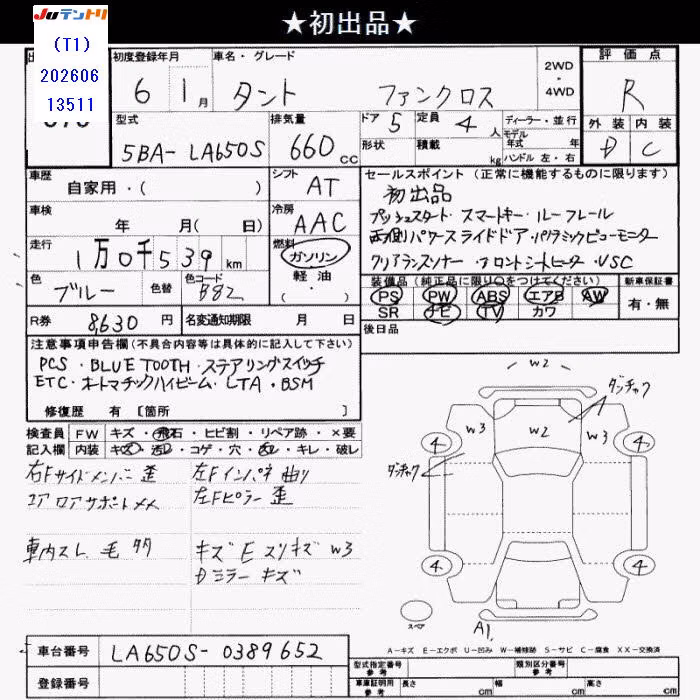 ★初出品★
JUテントリ
(T1)
202606
13511
初度登録年月
6 1月
車名・グレード
タント ファンクロス
2WD・4WD
評価点
R
外装 内装
D C
型式
5BA-LA650S
排気量
660 cc
ドア 5
定員 4人
形状
積載 kg
ディーラー・並行
モデル年式 年
ハンドル 左・右
車歴
自家用・( )
シフト
AT
車検
年 月( 日)
冷房
AAC
走行
1万0千539km
燃料
ガソリン
軽油
・( )
色
ブルー
色替
色コード
B82
セールスポイント(正常に機能するものに限ります)
初出品
プッシュスタート・スマートキー・ルーフレール
両側パワースライドドア・パノラミックビューモニター
クリアランスソナー・フロントシートヒーター・VSC
装備品(純正品に限り○をつけてください)
PS PW ABS エアB AW
SR ナビ TV カワ
新車保証書
有・無
後日品
R券 8,630円
名変通知期限 月 日
注意事項申告欄(不具合内容等は具体的に記入して下さい)
PCS・BLUETOOTH・ステアリングスイッチ
ETC・オートマチックハイビーム・LTA・BSM
修復歴 有[箇所 ]
検査員 FW キズ・飛石・ヒビ割・リペア跡・×要
記入欄 内装 キズ・汚レ・コゲ・穴・スレ・キレ・破レ
右Fサイドメンバー歪 左Fインパネ曲り
コアロアサポートメメ 左Fピラー歪
車内スレ 毛 多 キズEスリキズ W3
Dミラーキズ
W2
ダンチャク
W3 W2 W3
4 4
ダンチャク
4 4
スペア
A1
A-キズ E-エクボ U-凹み W-補修跡 S-サビ C-腐食 XX-交換済
車台番号 LA650S-0389652
登録番号
型式指定番号 参考
類別区分番号 参考
車庫証明用 参考
長さ cm
幅 cm
高さ cm